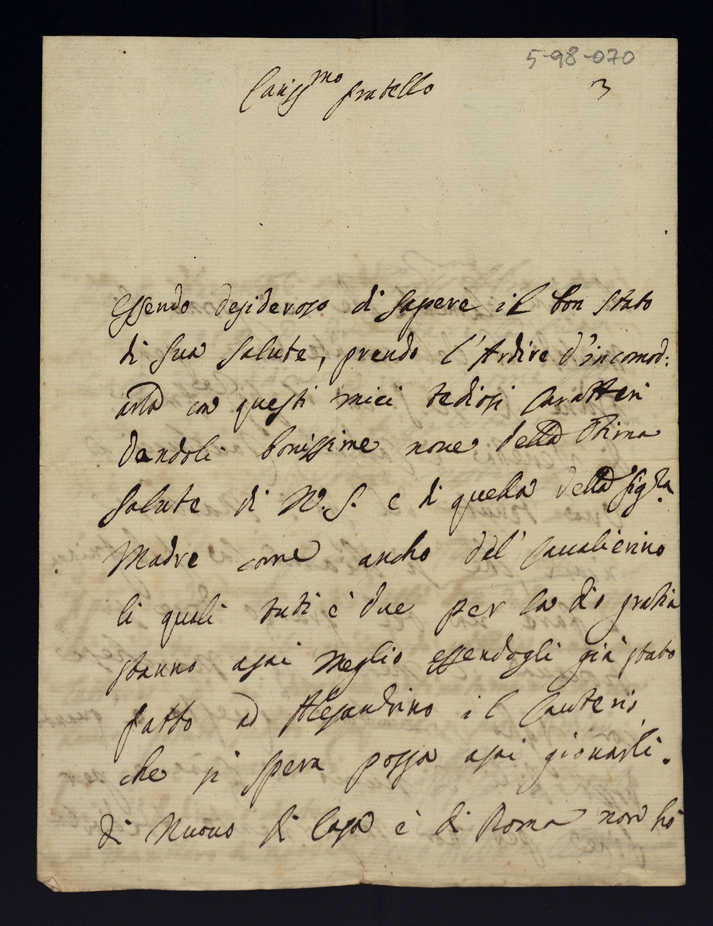 5-98-070
Cariss.mo fratello
3
Essendo desideroso di sapere il bon stato
di sua salute, prendo l'Ardire d'incomod:
arla con questi miei tediosi Caratteri
dandoli bonissime nove della
salute di N.S. e di quella della Sig.ra
Madre come ancho del Cavalierino
li quali tuti è due per la dio gratia
stanno asai meglio essendogli già stato
fatto ad Alesandrino il Cauterio,
che si spera possa asai giovarli.
di Nuovo di Casa è di Roma non hò